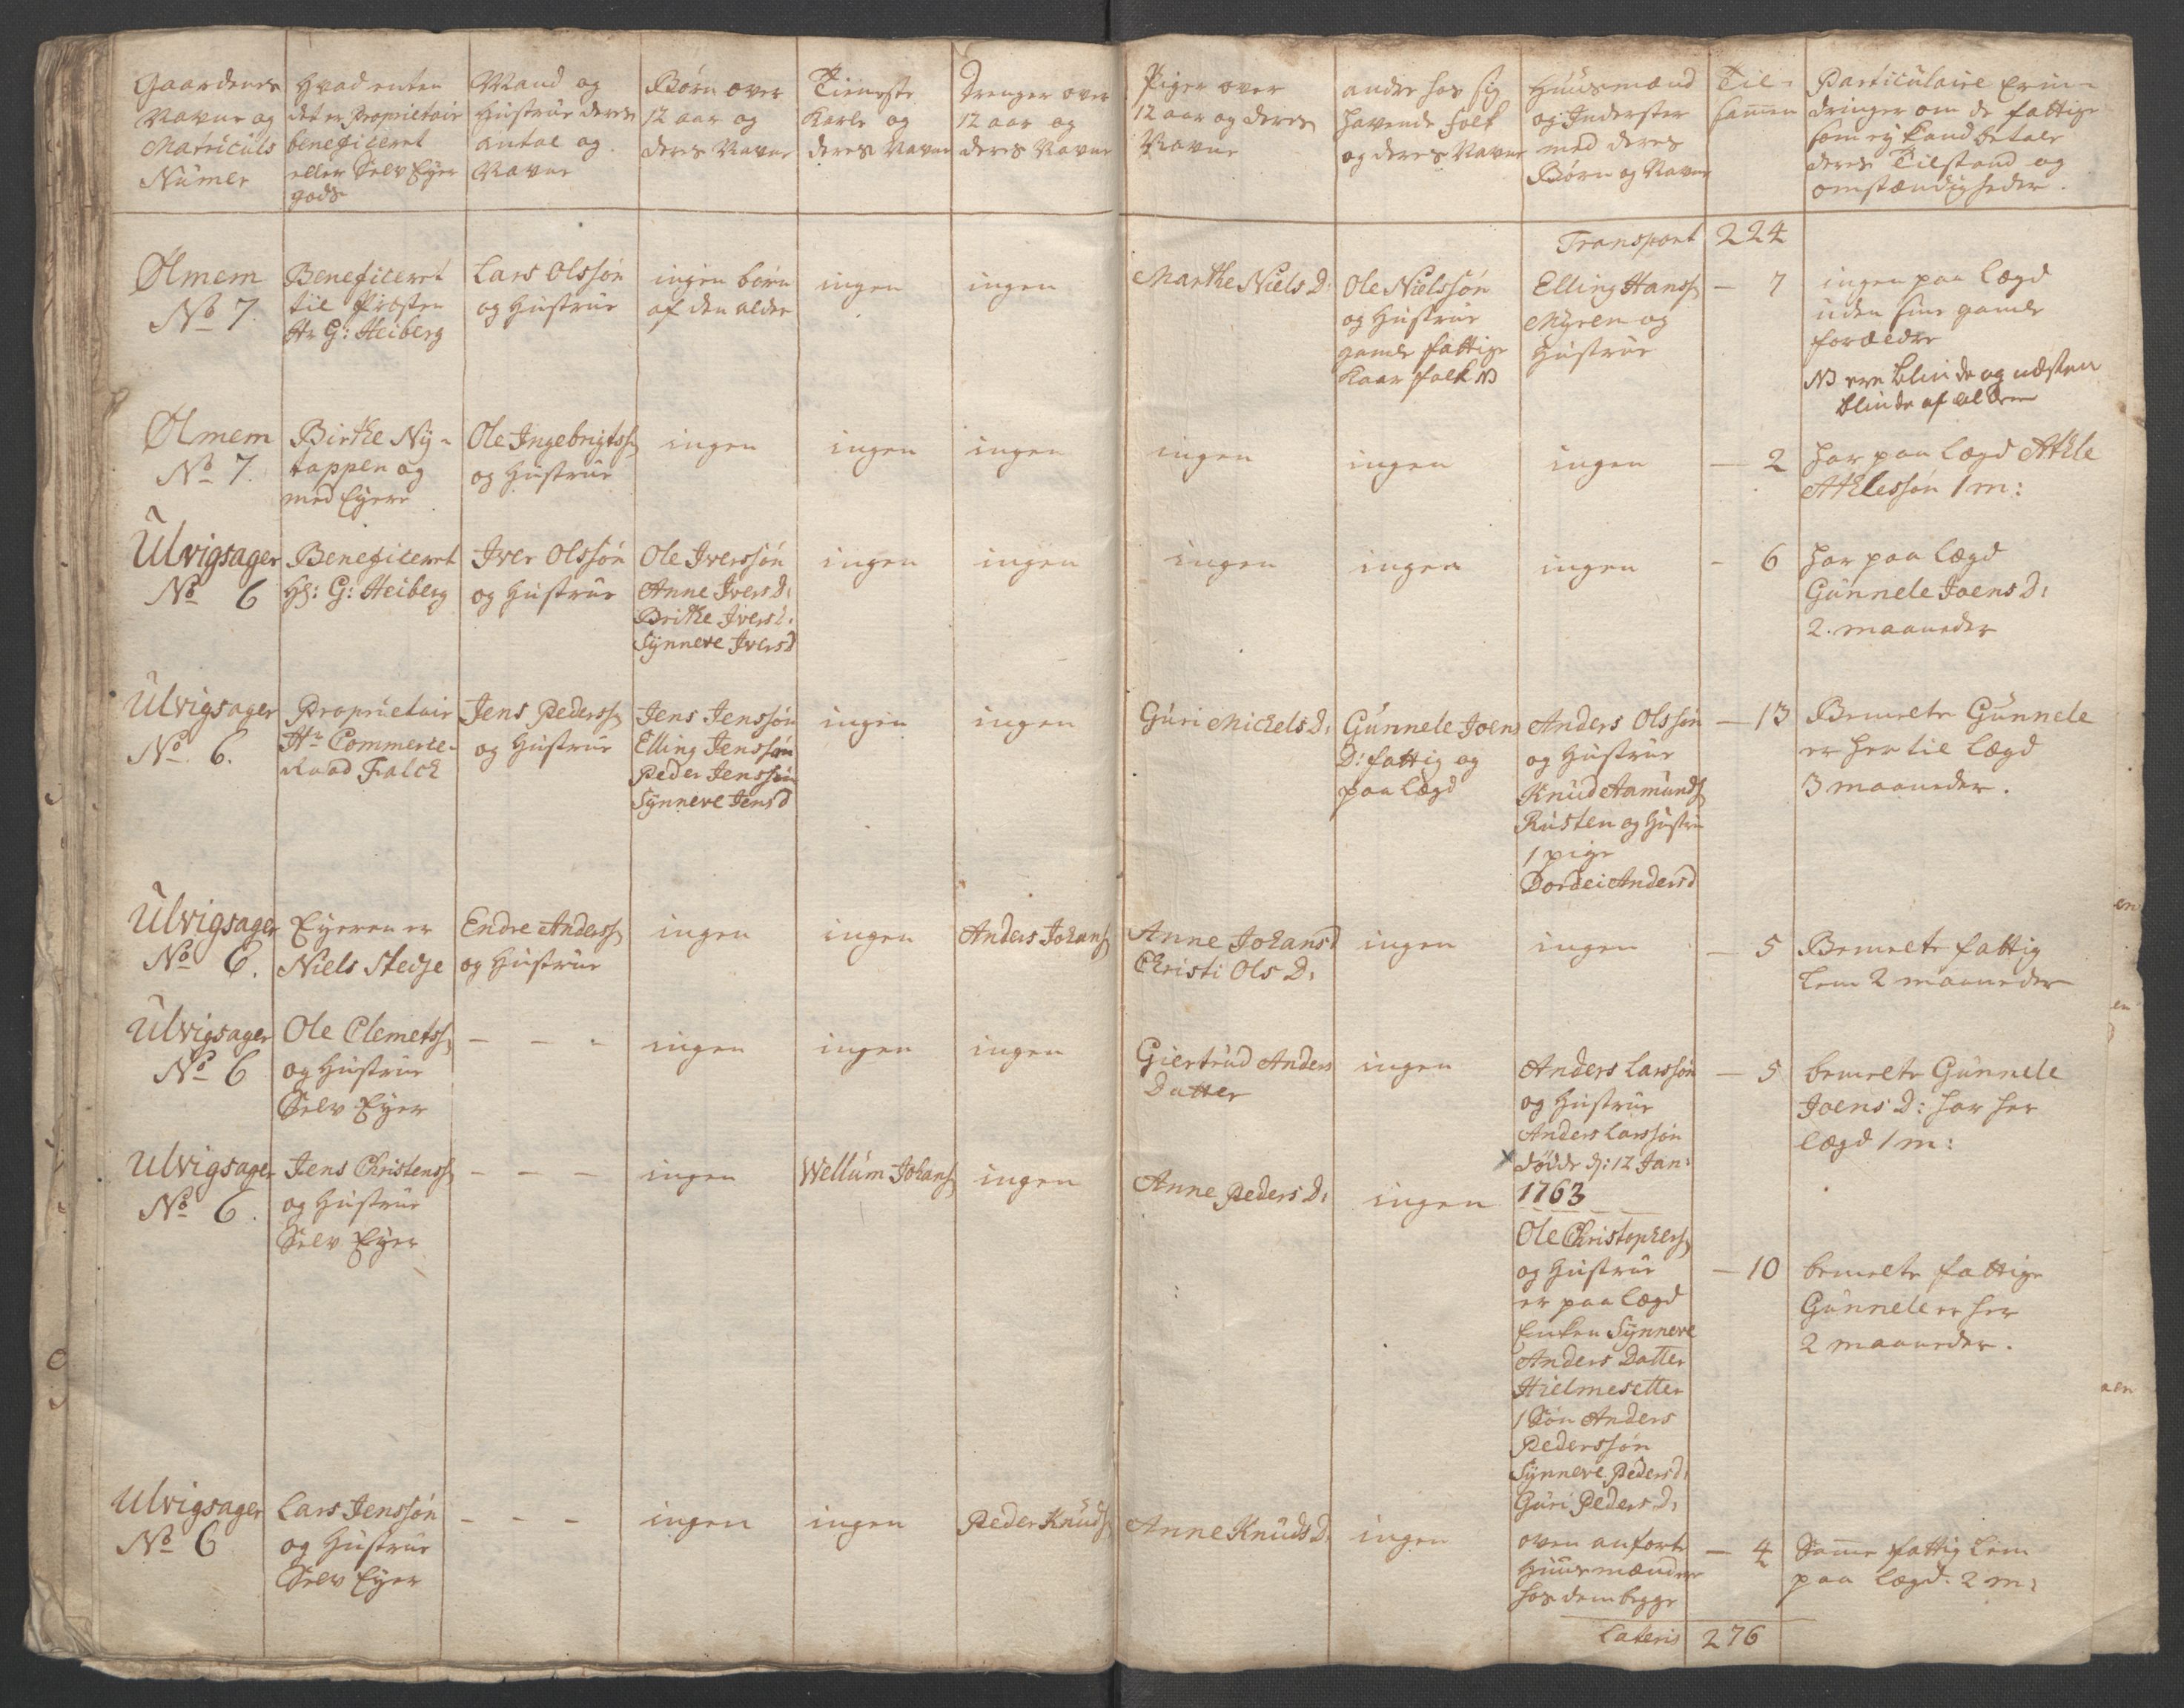 Gaardenes
Navne og
Matriculs
Numer
Hvad enten
det er Proprietair
beneficeret
eller Selv Eyer
gods
Mand og
Hustrue deres
antal og
Navne
Børn over
12 aar og
deres Navne
Tieneste
Karle og
deres Navne
Drenger over
12 aar og
deres Navne
Piger over
12 aar og deres
Navne
andre hos sig
havende folk
og deres Navne
Huusmænd
og Inderster
med deres
Børn og Navne
Til-
samen
Particulaire Erin-
dringer om de fattige
som ey kand betale
deres Tilstand og
omstændigheder.
Transport 224
Ølmem
No 7.
Beneficeret
til Prosten
Hr G: Heiberg
Lars Olssøn
og Hustrue
ingen børn
af den alder
ingen
ingen
Marthe Niels D:
Ole Nielssøn
og Hustrue
gamle fattige
Kaar folk NB
Elling Hanss
Myren og
Hustrue
– 7
ingen paa Lægd
uden sine gamle
forældre
NB ere blinde og næsten
blinde af alder
Ølmem
No 7.
Birthe Ny-
tappen og
med Eyere
Ole Ingebrigtss
og Hustrue
ingen
ingen
ingen
ingen
ingen
ingen
– 2
har paa Lægd Athle
Athlessøn 1 m:
Ulvigsager
No 6
Beneficeret
Hr: G: Heiberg
Iver Olssøn
og Hustrue
Ole Iverssøn
Anne Ivers D:
Brithe Ivers D:
Synneve Ivers D
ingen
ingen
ingen
ingen
ingen
- 6
har paa Lægd
Gunnele Joens D:
2. maaneder
Ulvigsager
No. 6.
Proprietair
Hr Commerce-
Raad Falck
Jens Pederss
og Hustrue
Jens Jenssøn
Elling Jenssøn
Peder Jenssøn
Synneve Jens d
ingen
ingen
Guri Michels D:
Gunnele Joens
D: fattig og
paa Lægd
Anders Olssøn
og Hustrue
Knud Aamunds
Rusten og Hustru
1 pige
Dordei Anders d
– 13
Bemelte Gunnele
er her til Lægd
3 maaneder.
Ulvigsager
No 6.
Eyeren er
Niels Stedje
Endre Anderss
og Hustrue
ingen
ingen
Anders Johans
Anne Johans d
Christi Ols D:
ingen
ingen
– 5
Bemelte fattig
Lem 2 maaneder
Ulvigsager
No 6
Ole Clemetss
og Hustrue
Selv Eyer
– – -
ingen
ingen
ingen
Giertrud Anders
Datter
ingen
Anders Larssøn
og Hustrue
Anders Larssøn
x døde d: 12 Jan:
1763
– 5
bemelte Gunnele
Joens D: har her
Lægd 1 m:
Ulvigsager
No 6.
Jens Christenss
og Hustrue
Selv Eyer
– – –
ingen
Wellum Johans
ingen
Anne Peders D:
ingen
Ole Christophers
og Hustrue
er paa Lægd
Enken Synneve
Anders Datter
Hielmesetter
1 Søn Anders
Pederssøn
Synneve Peders d:
Guri Peders D:
– 10
bemelte fattige
Gunnele er her
2 maaneder.
Ulvigsager
No 6
Lars Jenssøn
og Hustrue
Selv Eyer
- - -
ingen
ingen
Peder Knuds
Anne Knuds D:
ingen
oven anførte
Huusmænder
hos dem begge
– 4
Same fattig Lem
paa Lægd. 2 m:
Lateris 276